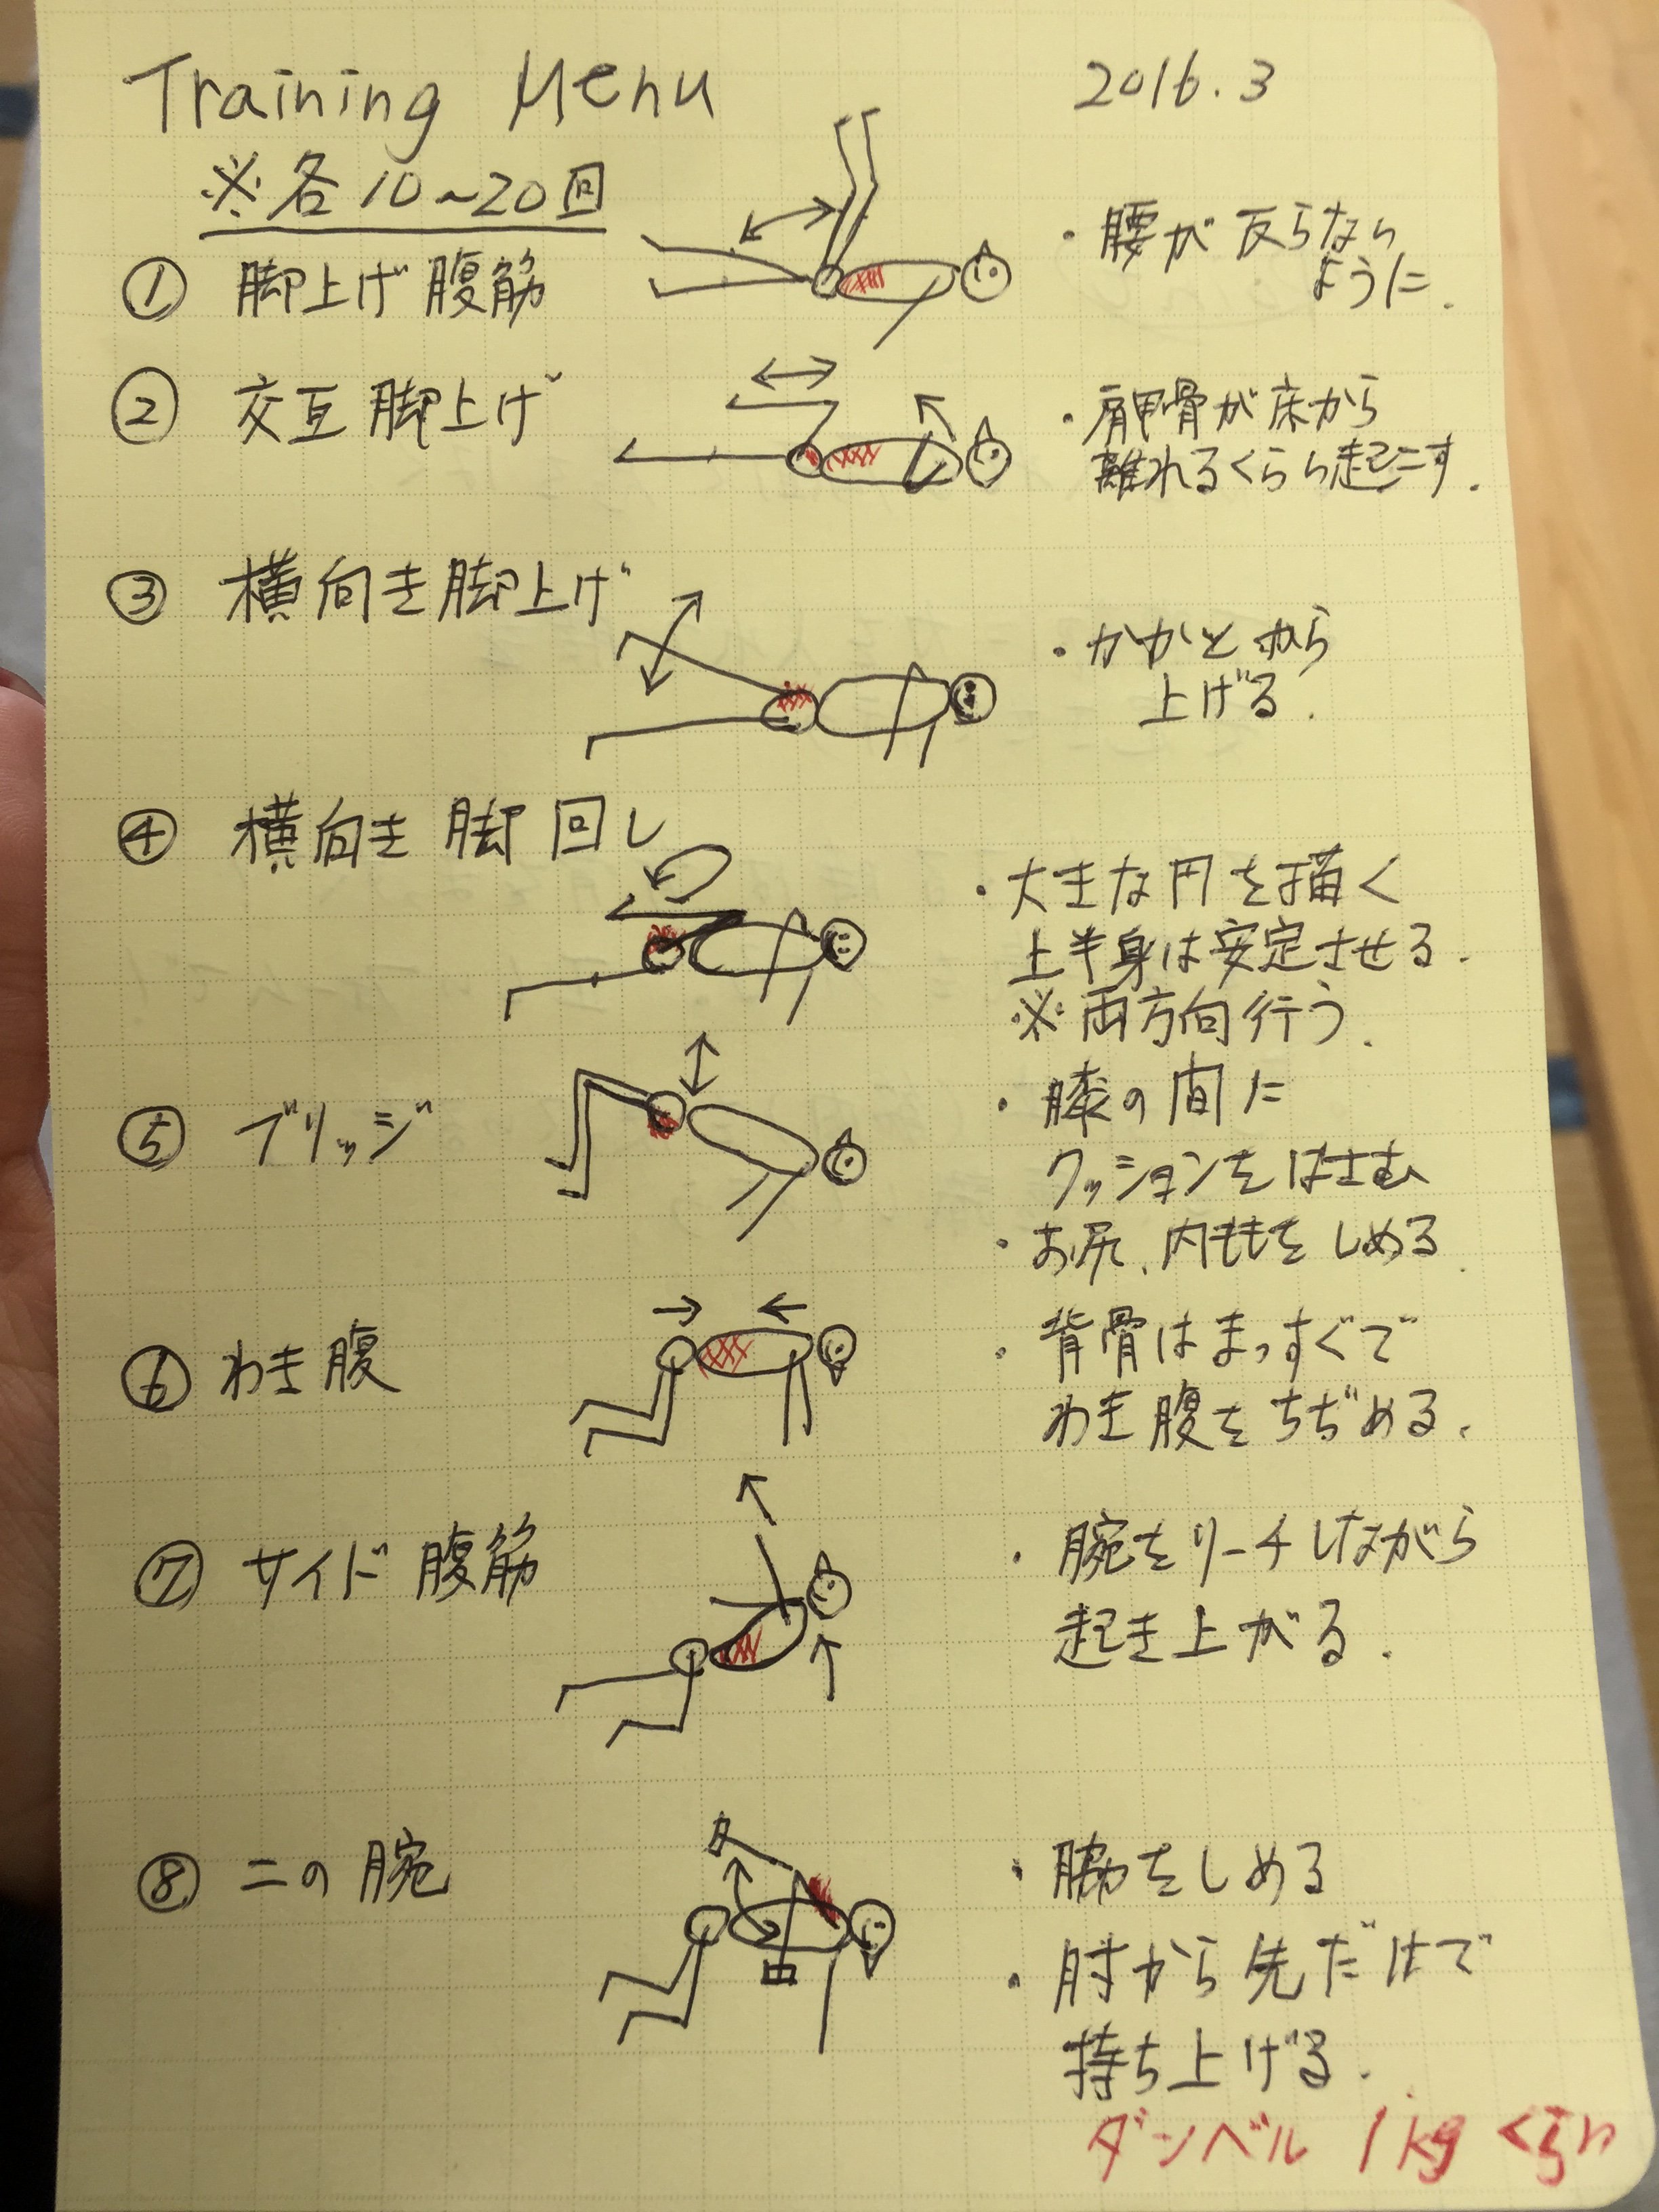 Training Menu 2016.3
※各10~20回
① 脚上げ腹筋
・腰が反らない
ように.
② 交互脚上げ
・肩甲骨が床から
離れるくらい起こす.
③ 横向き脚上げ
・かかとから
上げる.
④ 横向き脚回し
・大きな円を描く
上半身は安定させる.
※両方向行う.
⑤ ブリッジ
・膝の間に
クッションをはさむ
・お尻、内ももをしめる.
⑥ わき腹
・背骨はまっすぐで
わき腹をちぢめる.
⑦ サイド腹筋
・腕をリーチしながら
起き上がる.
⑧ 二の腕
・脇をしめる
・肘から先だけで
持ち上げる.
ダンベル 1kgくらい